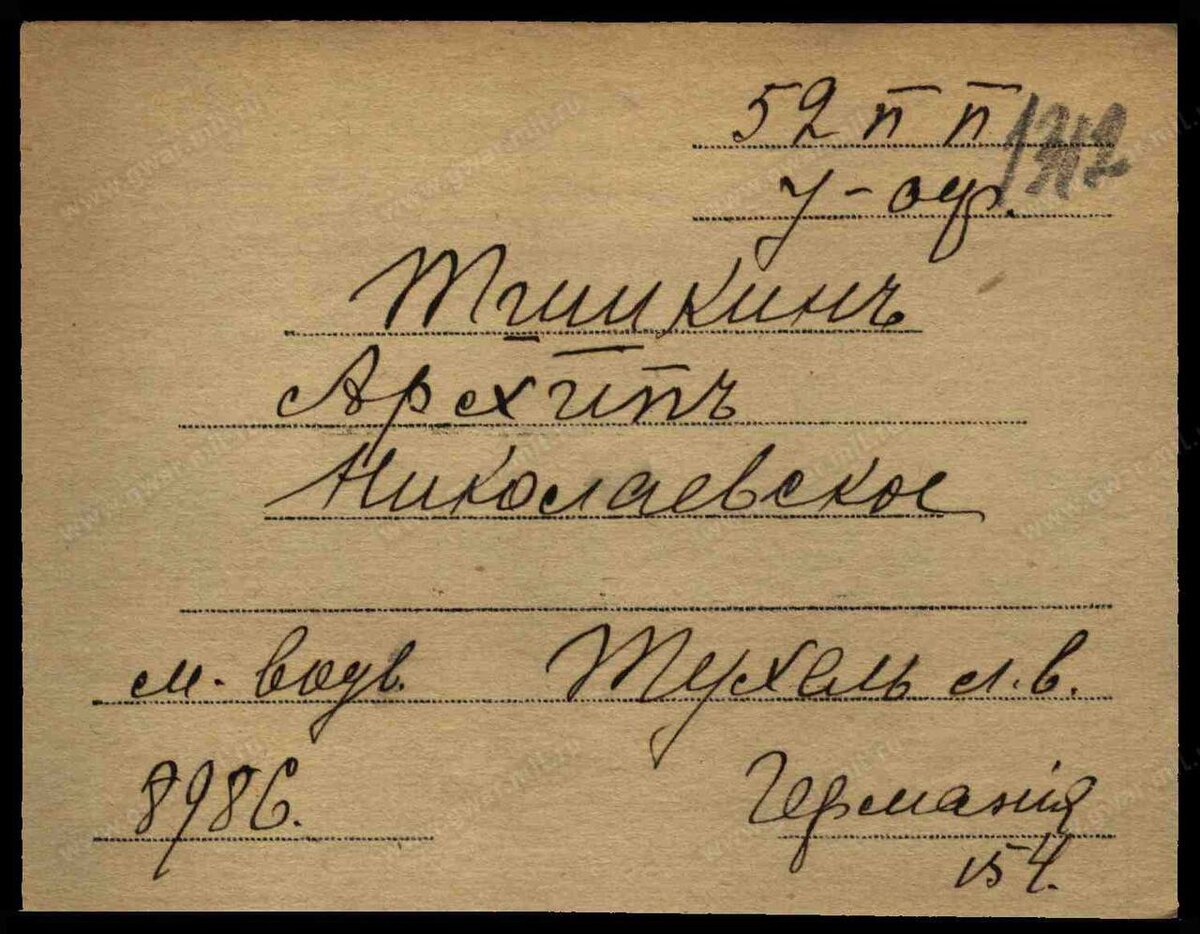 52 п п
у-оф.
Тишкинъ
Архипъ
Николаевское
м. водв. Тухель л.в.
8986.
Германія
154.